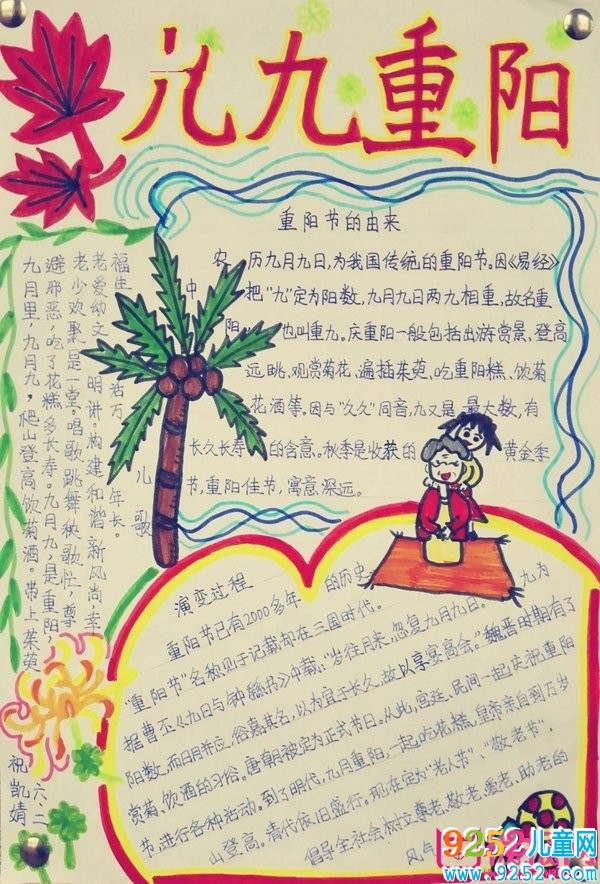 九九重阳
重阳节的由来
农历九月九日,为我国传统的重阳节。因《易经》
中把“九”定为阳数,九月九日两九相重,故名重
阳,也叫重九。庆重阳一般包括出游赏景、登高
远眺、观赏菊花、遍插茱萸、吃重阳糕、饮菊
花酒等。因与“久久”同音,九又是最大数,有
长久长寿的含意。秋季是收获的黄金季
节,重阳佳节,寓意深远。
儿歌
九月里,九月九,爬山登高饮菊酒。带上茱萸
避邪恶,吃了花糕多长寿。九月九,是重阳,
老少欢聚是一堂。唱歌跳舞秧歌忙,尊
老爱幼文明讲。构建和谐新风尚,幸
福生活万年长。
演变过程
重阳节已有2000多年的历史
“重阳节”名称见于记载却在三国时代。
据曹丕《九日与钟繇书》中载:“岁往月来,忽复九月九日。九为
阳数,而日月并应,俗嘉其名,以为宜于长久,故以享宴高会。”魏晋时期有了
赏菊、饮酒的习俗。唐朝被定为正式节日。从此,宫廷、民间一起庆祝重阳
节,进行各种活动。到了明代,九月重阳,一起吃花糕,皇帝亲自到万岁
山登高。清代依旧盛行。现在定为“老人节”、“敬老节”,
倡导全社会树立尊老、敬老、爱老、助老的
风气
六.二
祝凯婧
9252儿童网
www.9252.com